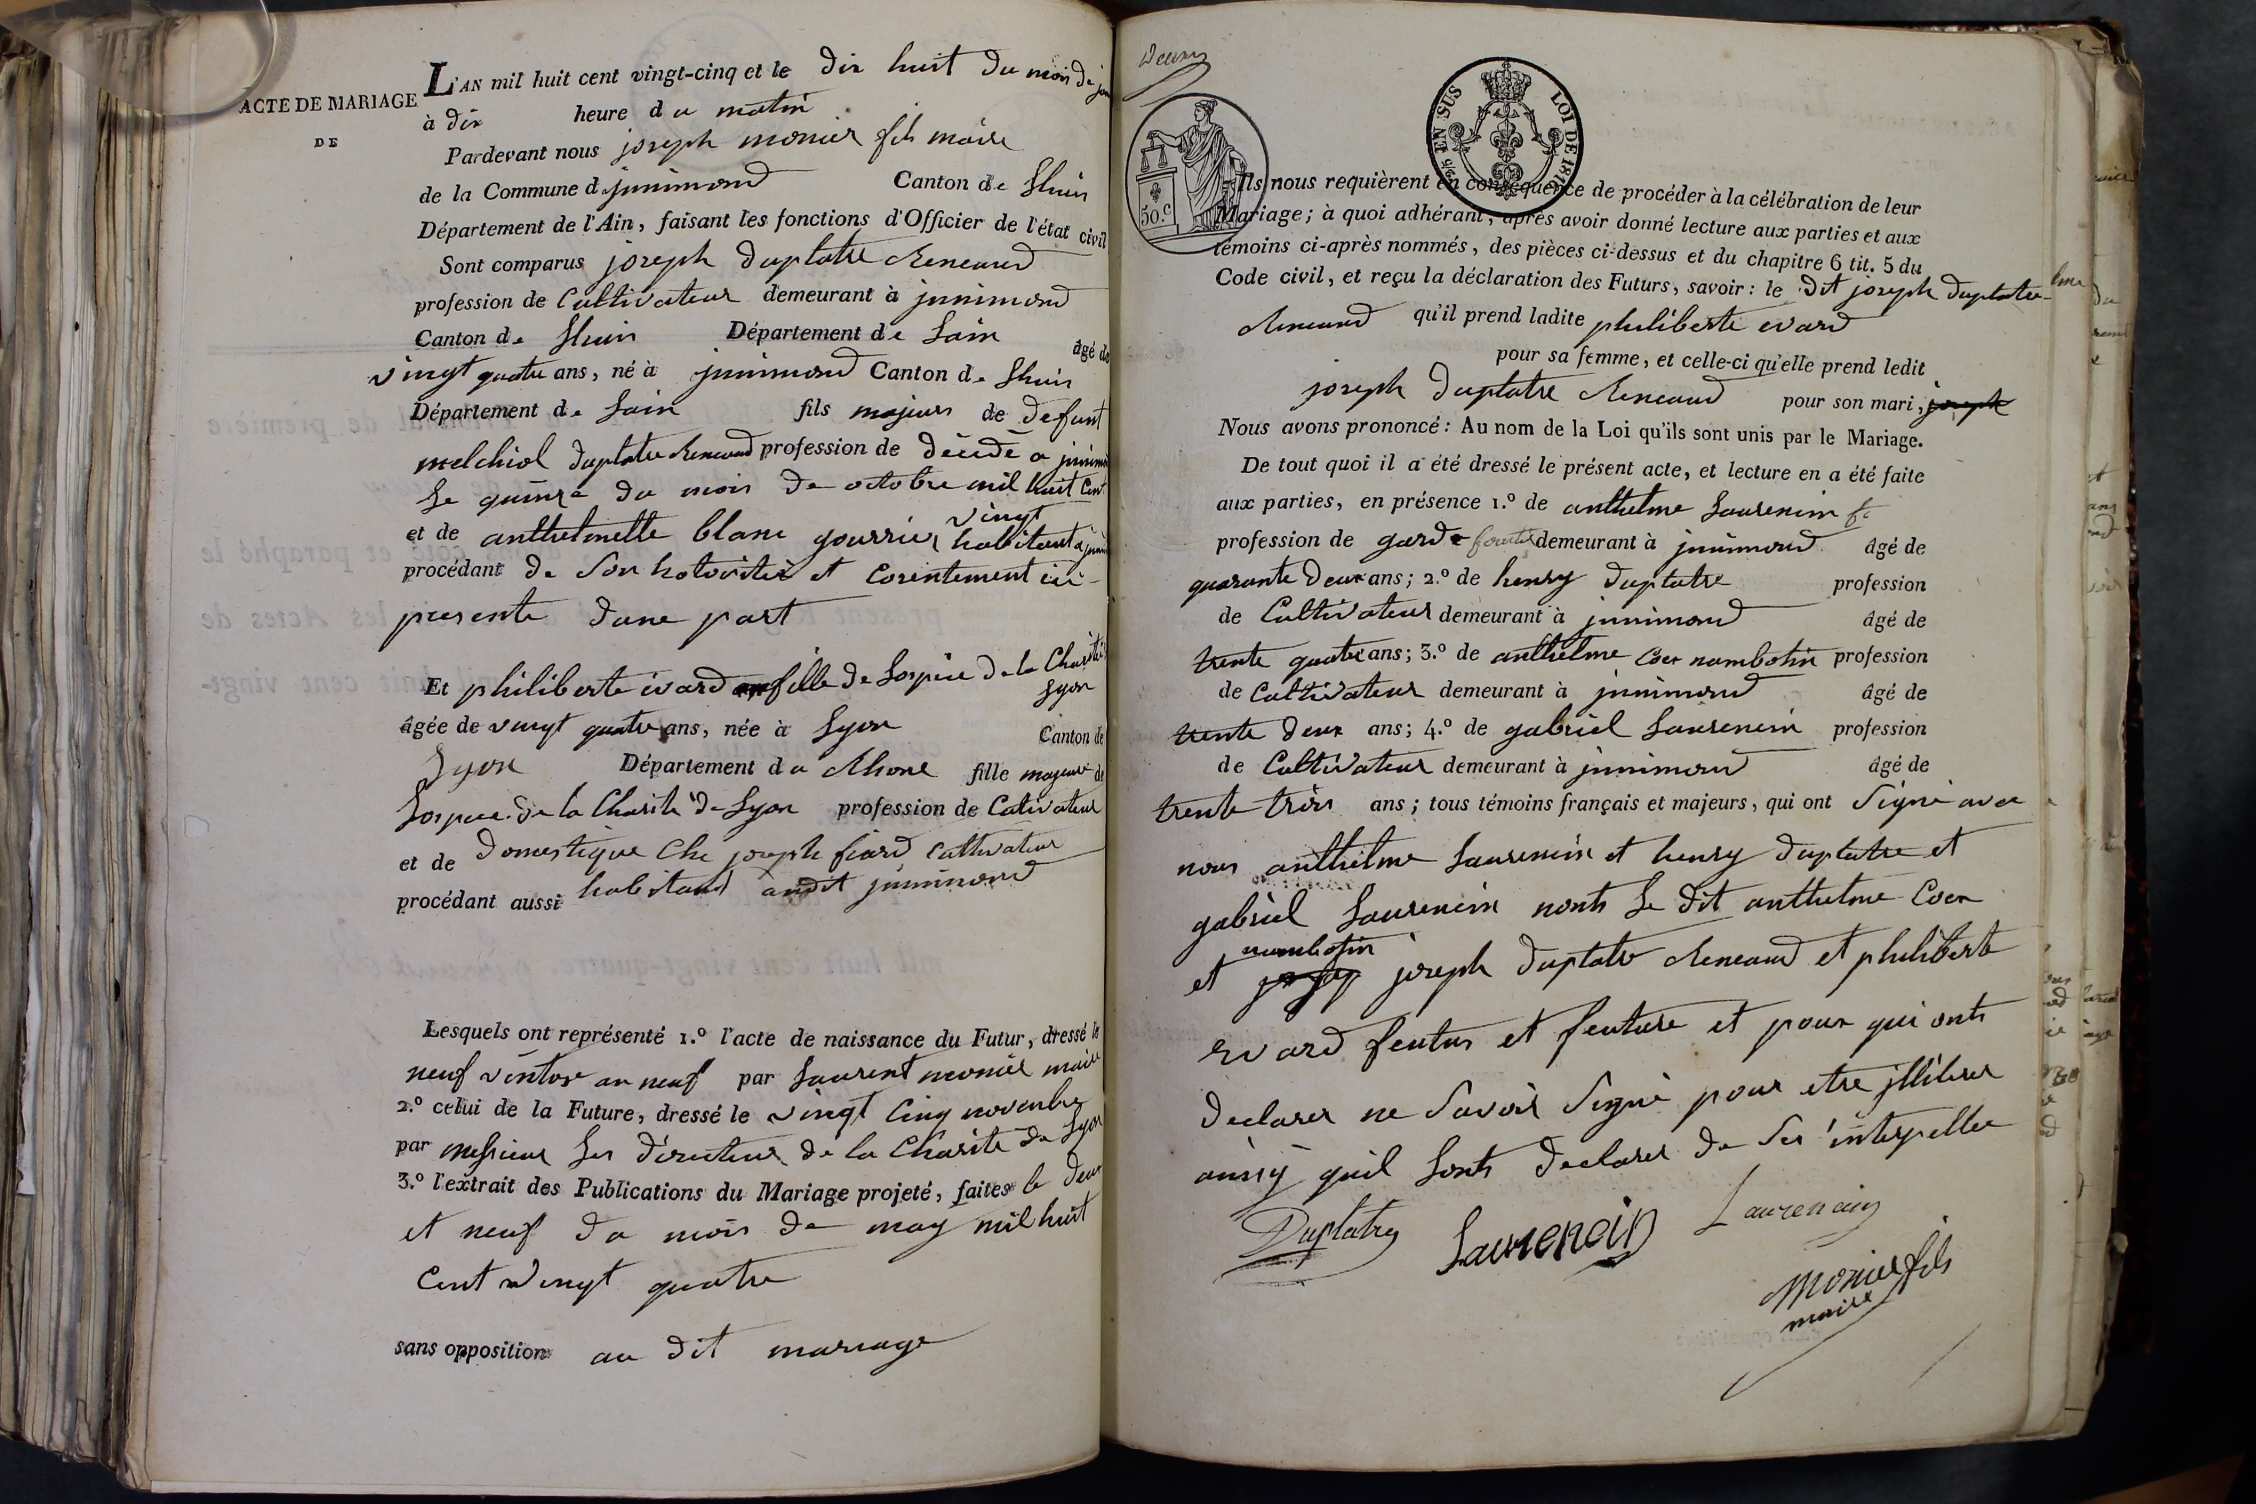 L'AN mil huit cent vingt-cinq et le dix huit du mois de
ACTE DE MARIAGE
à dix heure du matin
DE
Pardevant nous joseph monier fils maire
de la Commune d junimond Canton de Lhuis
Département de l'Ain, faisant les fonctions d'Officier de l'état civil
Sont comparus joseph duplatre Reneaud
profession de Cultivateur demeurant à junimond
Canton de Lhuis Département de Lain âgé de
vingt quatre ans, né à junimond Canton de Lhuis
Département de Lain fils majeur de defunt
melchiol duplatre Reneaud profession de décédé a
Le quinze du mois de octobre mil huit Cent
vingt
et de anthelmette blanc gourrier habitant a
procédant de Son hotoritéé et Corentement ici
presente dune part
Et philiberte évard fille de Lospice de la Charité
Lyon
âgée de vingt quatre ans, née à Lyon Canton de
Lyon Département du Rhone fille majeure de
Lospice de la Charité de Lyon profession de Cativateur
et de domestique Che joseph fiard Cultivateur
procédant aussi habitand audit junimond
Lesquels ont représenté 1.º l'acte de naissance du Futur, dressé le
neuf ventose an neuf par Laurent monier maire
2.º celui de la Future, dressé le vingt Cinq novembre
par messieur Les directeur de la Charité de Lyon
3.º l'extrait des Publications du Mariage projeté, faites le deux
et neuf du mois de may mil huit
Cent vingt quatre
sans opposition au dit mariage
50.c
EN SUS
LOI DE 1816
Ils nous requièrent en conséquence de procéder à la célébration de leur
Mariage; à quoi adhérant, après avoir donné lecture aux parties et aux
témoins ci-après nommés, des pièces ci-dessus et du chapitre 6 tit. 5 du
Code civil, et reçu la déclaration des Futurs, savoir: le dit joseph duplatre
Reneaud qu'il prend ladite philiberte evard
pour sa femme, et celle-ci qu'elle prend ledit
joseph duplatre Reneaud pour son mari, joseph
Nous avons prononcé: Au nom de la Loi qu'ils sont unis par le Mariage.
De tout quoi il a été dressé le présent acte, et lecture en a été faite
aux parties, en présence 1.º de anthelme Laurencin
profession de garde demeurant à junimond âgé de
quarante deux ans; 2.º de henry duplatre profession
de Cultivateur demeurant à junimond âgé de
trente quatre ans; 3.º de anthelme Coex nambotin profession
de Cultivateur demeurant à junimond âgé de
trente deux ans; 4.º de gabriel Laurencin profession
de Cultivateur demeurant à junimond âgé de
trente trois ans; tous témoins français et majeurs, qui ont Signé avec
nous anthelme Laurencin et henry duplatre et
gabriel Laurencin nonts Le dit anthelme Coex
nambotin
et joseph duplatre Reneaud et philiberte
evard feutur et feuture et pour qui onts
declarer ne Savoir Signé pour etre jlliterer
ainsy quil Lonts declarer de Ses interpeller
Duplatre Laurencin Laurencin
Monier fils
maire